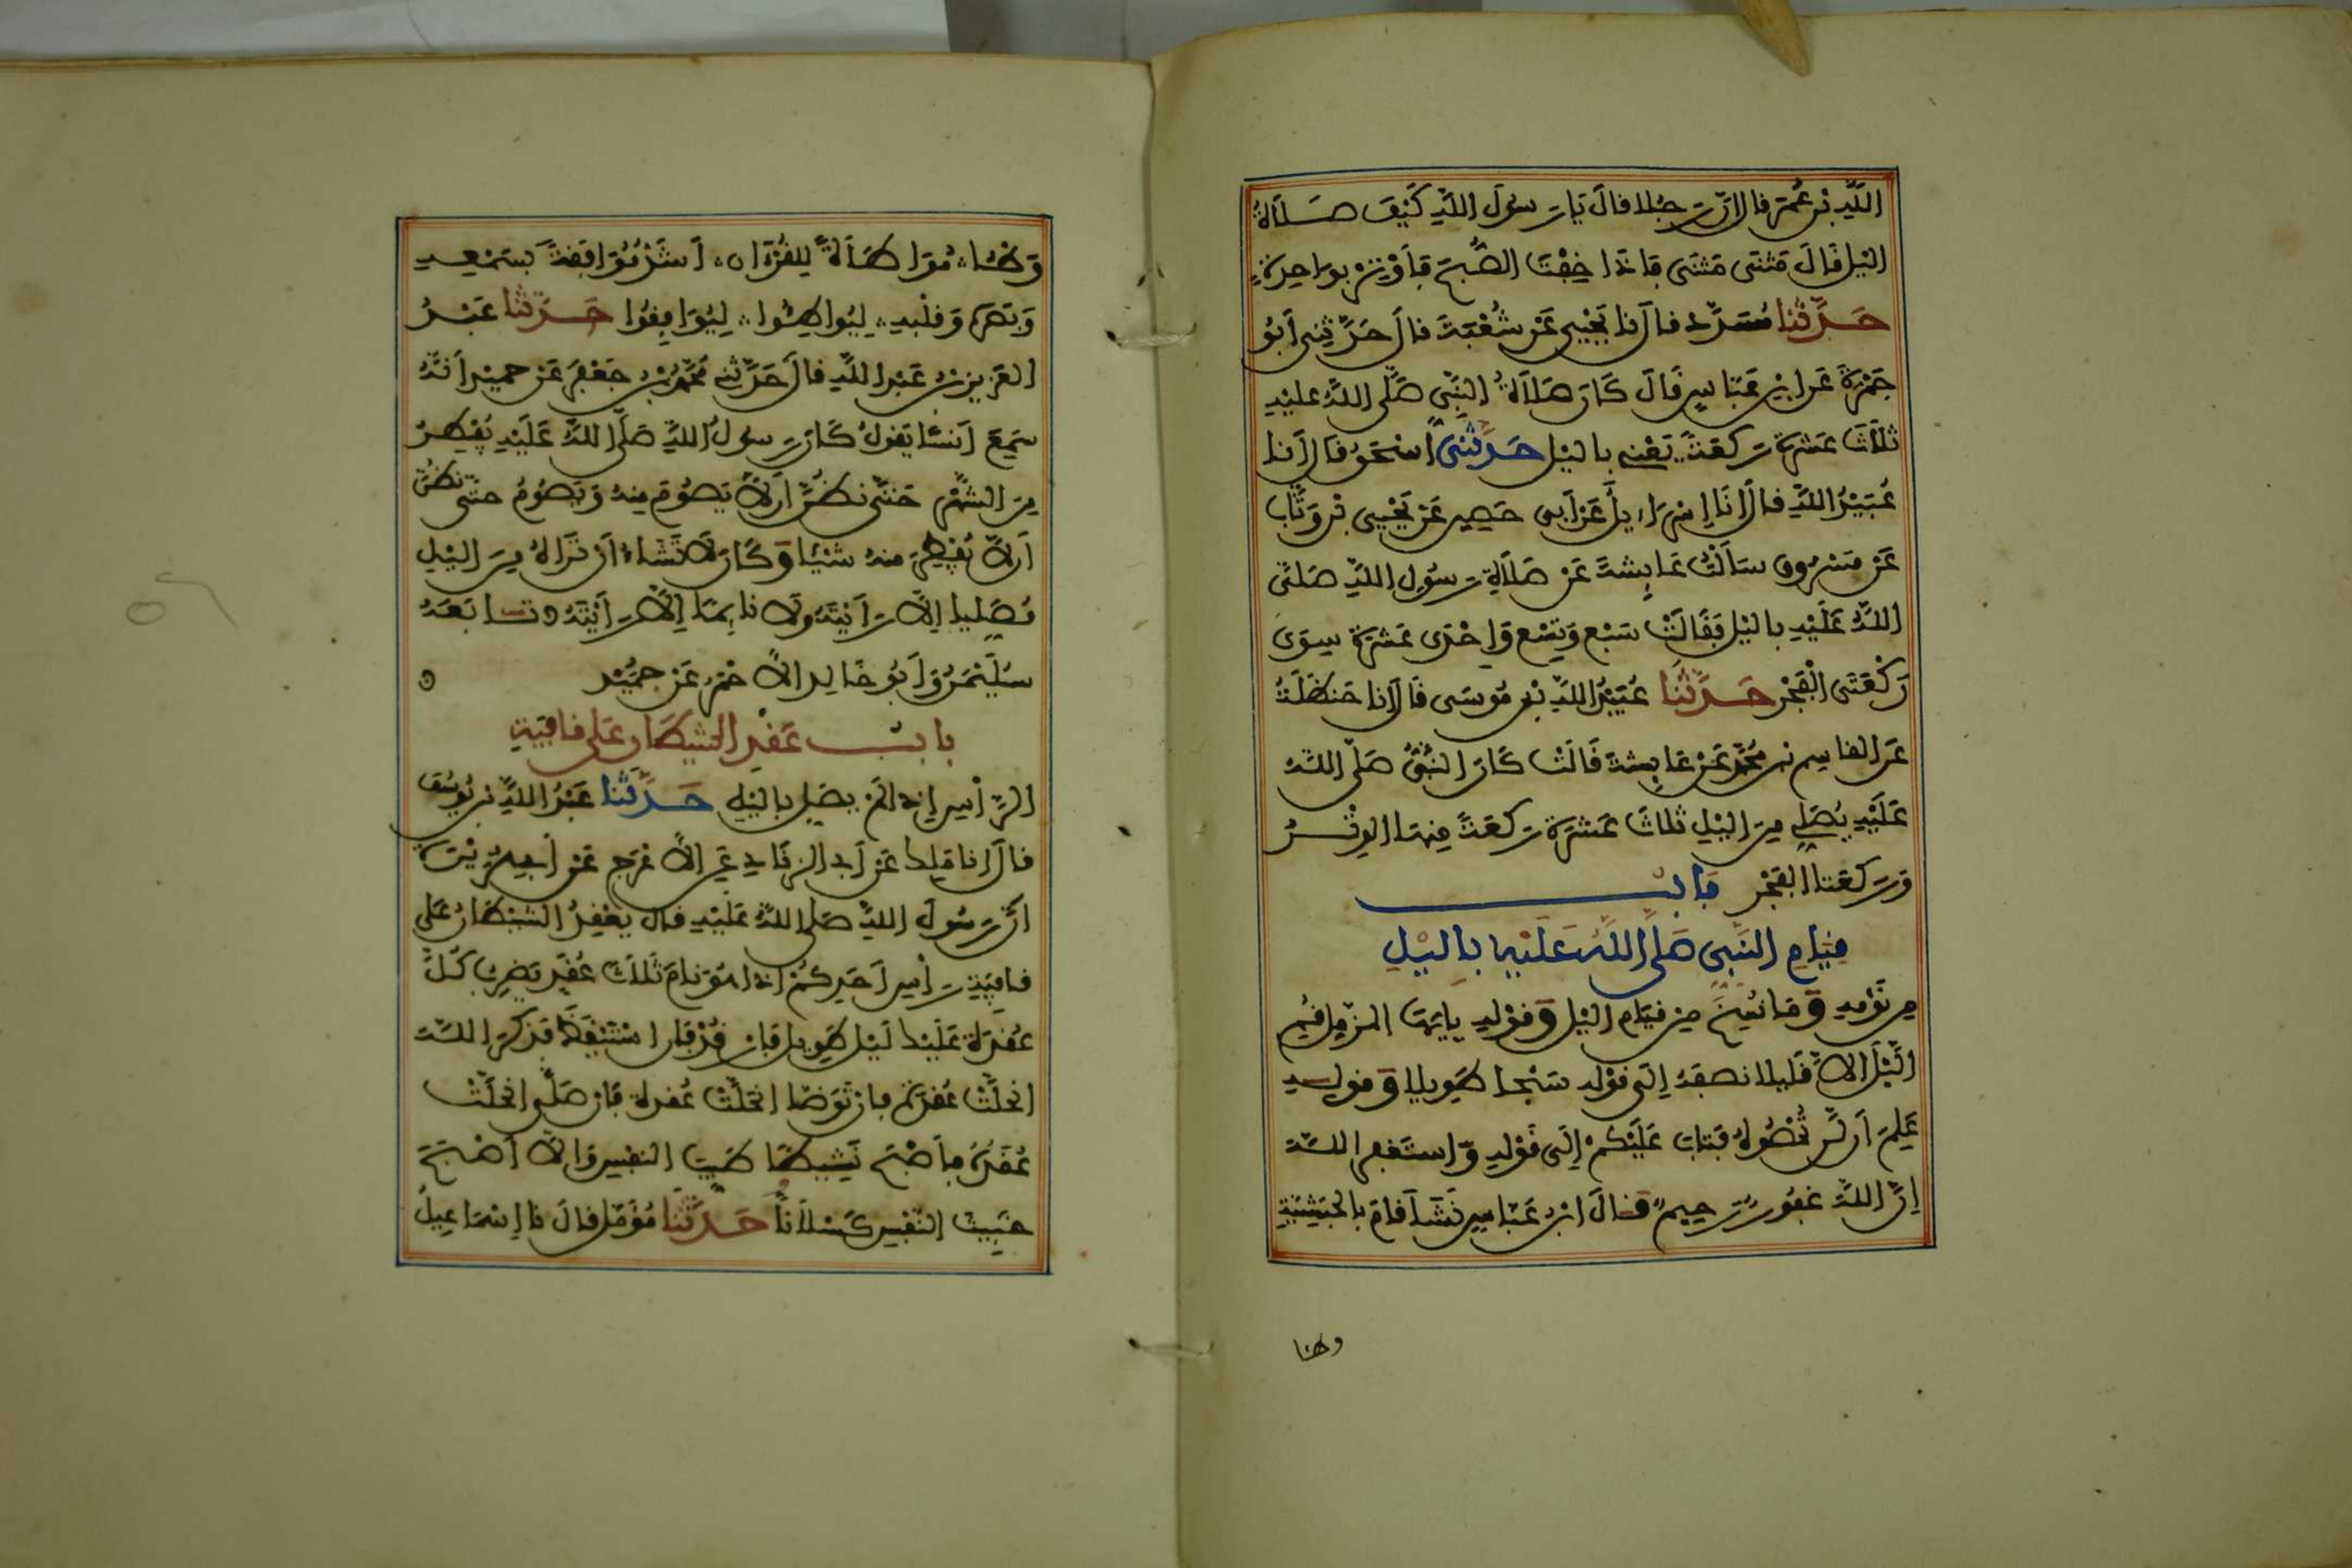 اللَّهِ بْنَ عُمَرَ قال إنّ رجُلا قالَ يَا رسولَ اللهِ كَيْفَ صَلَاةُ
اليْلِ قَالَ مَثْنَى مَثْنَى فَإذَا خِفْتَ الصُّبحَ فَأَوْتِرْ بوَاحِدةٍ
حَدَّثَنا مُسَدَّد قال نا يَحْيِي عَنْ شُعْبَةَ قالَ حَدَّثنِي أَبُو
جَمْرَةَ عَن ابْنِ عَبّاسٍ قَالَ كَانَ صَلَاةُ النَّبِي صَلَّى اللهُ عليْهِ
ثَلَاثَ عَشْرَةَ ركعَةً يَعْنِي باليْل حَدَّثَنِي اسْحَقُ قال أنا
عُبَيْدُ اللَّهِ قال أنَا إِسْرَاءِيلُ عَن أَبِي حَصِين عَنْ يَحْيِى بْن وَثَّاب
عَنْ مَسْرُوق سَأَلْتُ عَايِشَةَ عَنْ صَلَاةِ رسُولِ اللَّهِ صَلَّى
اللَّهُ عَلَيْهِ باليْل فَقَالَتْ سَبْع وَتِسْع وَإِحْدَى عَشْرَةَ سِوَى
رَكْعَتَي الْفَجْرِ حَدَّثَنَا عُبَيْدُ اللَّهِ بْن مُوسَى قَالَ أنا حَنظَلَةُ
عَن القاسِم بْن مُحَمَّدٍ عَنْ عَايِشَةَ قَالَتْ كَانَ النَّبِيُّ صَلَّى اللهُ
عَلَيْهِ يُصَلِّي مِنَ اليْلِ ثَلَاثَ عَشْرَةَ ركعَةً مِنهَا الوِتْـرُ
وَركعَتا الفَجْر بَابُ
قِيَامِ النَّبِي صَلَّى اللَّهُ عَلَيْهِ بِاليْلِ
مِن نَوْمِهِ وَمَا نُسِخَ مِن قيَامِ اليْل وَقوْلِهِ يايّهَا المزّمل قُمِ
اليْلَ إلاّ قَلِيلا نصفَهُ إلَى قوْلِه سَبْحا طَوِيلا وَقولِـهِ
عَلِمَ أَن لَّن تُحْصُوهُ فَتَابَ عَلَيْكُمْ إلَى قَوْلِهِ وَاستَغفِروا اللهَ
إنَّ اللَّهَ غَفُورٌ رَحِيمٌ قالَ ابْنُ عَبّاسٍ نَشَأَ قامَ بالحَبَشِيّةِ
وطئا
وَطْئا مُوَاطَأَةً لِلقُرْآن أَشَدُّ مُوَافَقَةً لِسَمْعِهِ
وَبَصَرِهِ وَقلْبِهِ لِيُواطِئُوا لِيُوَافِقُوا حَدَّثَنَا عَبْدُ
العَزِيزِ بْنُ عَبْدِ اللَّهِ قالَ حَدَّثَنِي مُحَمَّدُ بْنُ جَعْفَرٍ عَن حميْد أَنَّهُ
سَمِعَ أَنَسًا يَقولُ كَانَ رسولُ اللَّهِ صَلَّى اللَّهُ عَلَيْهِ يُفْطِرُ
مِنَ الشَّهْرِ حَتَّى نظُنَّ أَن لاَّ يَصُومَ مِنهُ وَيَصُومُ حتَّى نظُنَّ
أن لاَّ يُفْطِرَ مِنهُ شَيْئا وَكَانَ لَا تَشَاءُ أَن تَرَاهُ مِنَ اليْلِ
مُصَلِيا إلاَّ رَأَيْتَهُ وَلَا نايِمًا إلاَّ رَأيْتَهُ تـابَعَهُ
سُلَيْمَنُ وَأَبُو خَالِد الأَحْمَرُ عَن حميْد
بابُ عَقْدِ الشيطَانِ عَلى قافِيَةِ
الرّأْسِ إذا لَمْ يصَلِّ باليْلِ حَدَّثَنا عَبْدُ اللَّهِ بْن يُوسُفَ
قالَ انا مَلِك عَن أَبِي الزِّنَادِ عَنِ الأَعْرَجِ عَنْ أَبِي هُرَيْرَةَ
أنَّ رسُولَ اللَّهِ صَلَّى اللهُ عَلَيْهِ قالَ يعْقِدُ الشيْطَانُ عَلَى
قافِيَةِ رأسِ أحَدِكُمْ إذا هُوَ نَامَ ثَلَاثَ عُقَدٍ يَضْرِبُ كُلَّ
عُقْدَةٍ عَلَيْكَ لَيْل طَوِيل فَارْقُدْ فَإن اسْتَيْقَظَ فَذَكَرَ اللهَ
انحَلَّتْ عُقدَةٌ فإن تَوَضّأ انحَلَّتْ عُقدَة فَإن صَلَّى انحَلَّتْ
عُقَدُهُ فأَصْبَحَ نَشِيطًا طَيِّبَ النفْسِ وَإلاَّ أَصْبَحَ
خَبِيثَ النّفْسِ كَسْلاَناً حَدَّثَنَا مُؤَمَّل قالَ نا إسْمَاعِيلُ